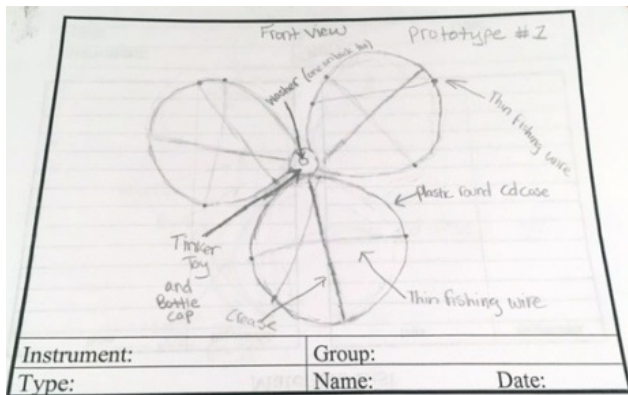 Front View
Prototype #1
Washer (one on back too)
Thin fishing wire
Plastic round cd case
Tinker
Toy
and
Bottle
cap
Crease
Thin fishing wire
Instrument:
Group:
Type:
Name:
Date: